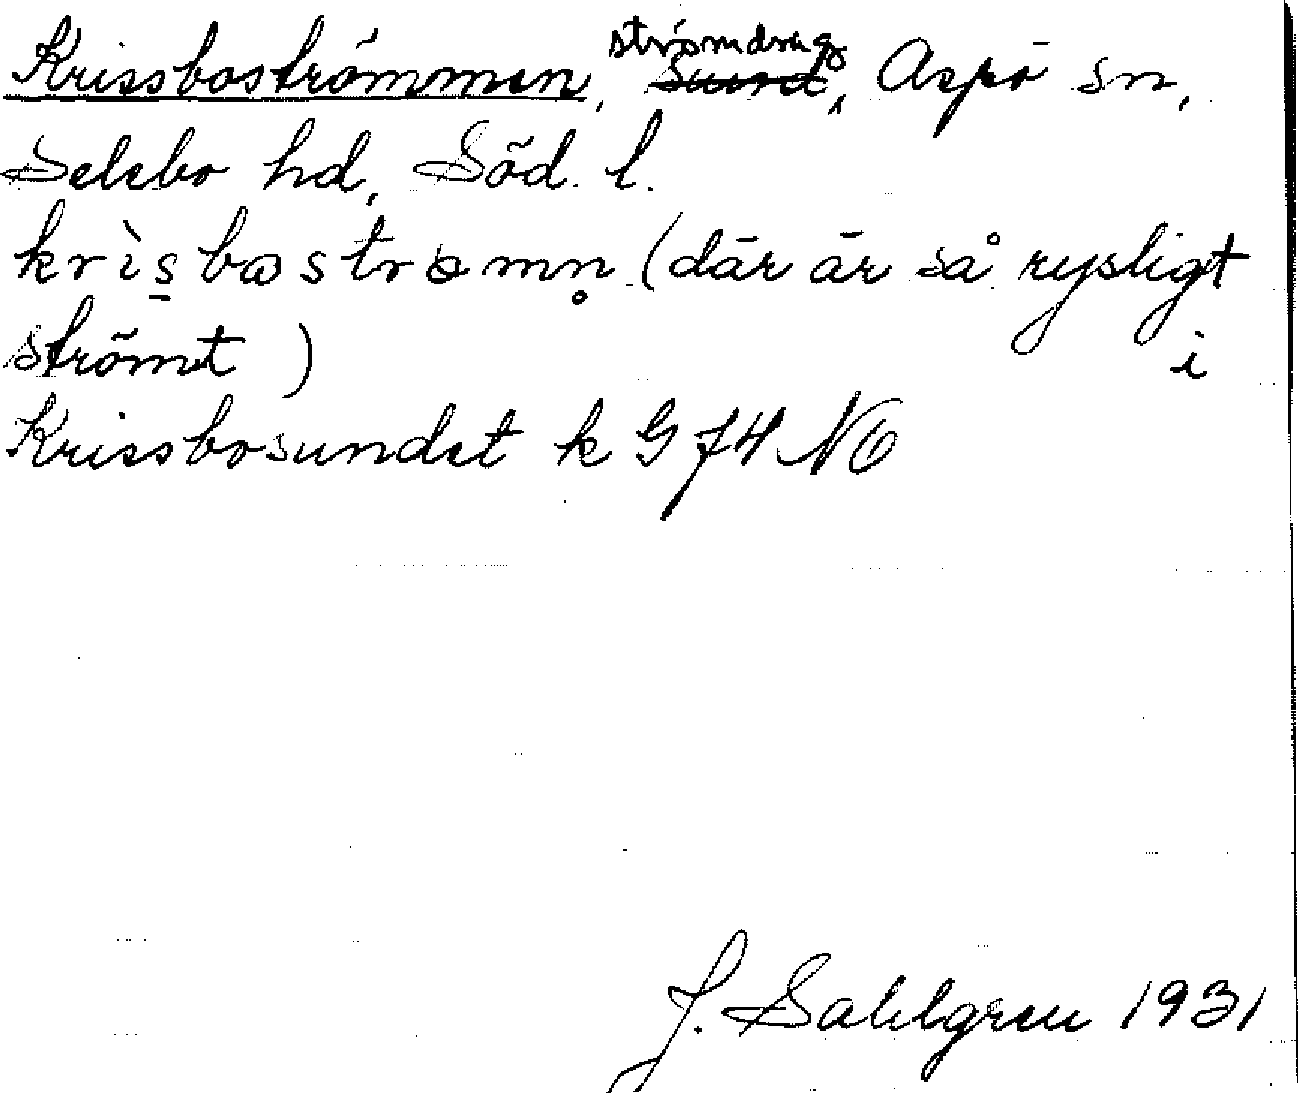 Krissboströmmen, strömdrag, Aspö sn,
Selebo hd, Söd. l.
krìs̠bωstrɵmn̥ (där är så rysligt
strömt) i
Krissbosundet k G f4 NO
J. Sahlgren 1931